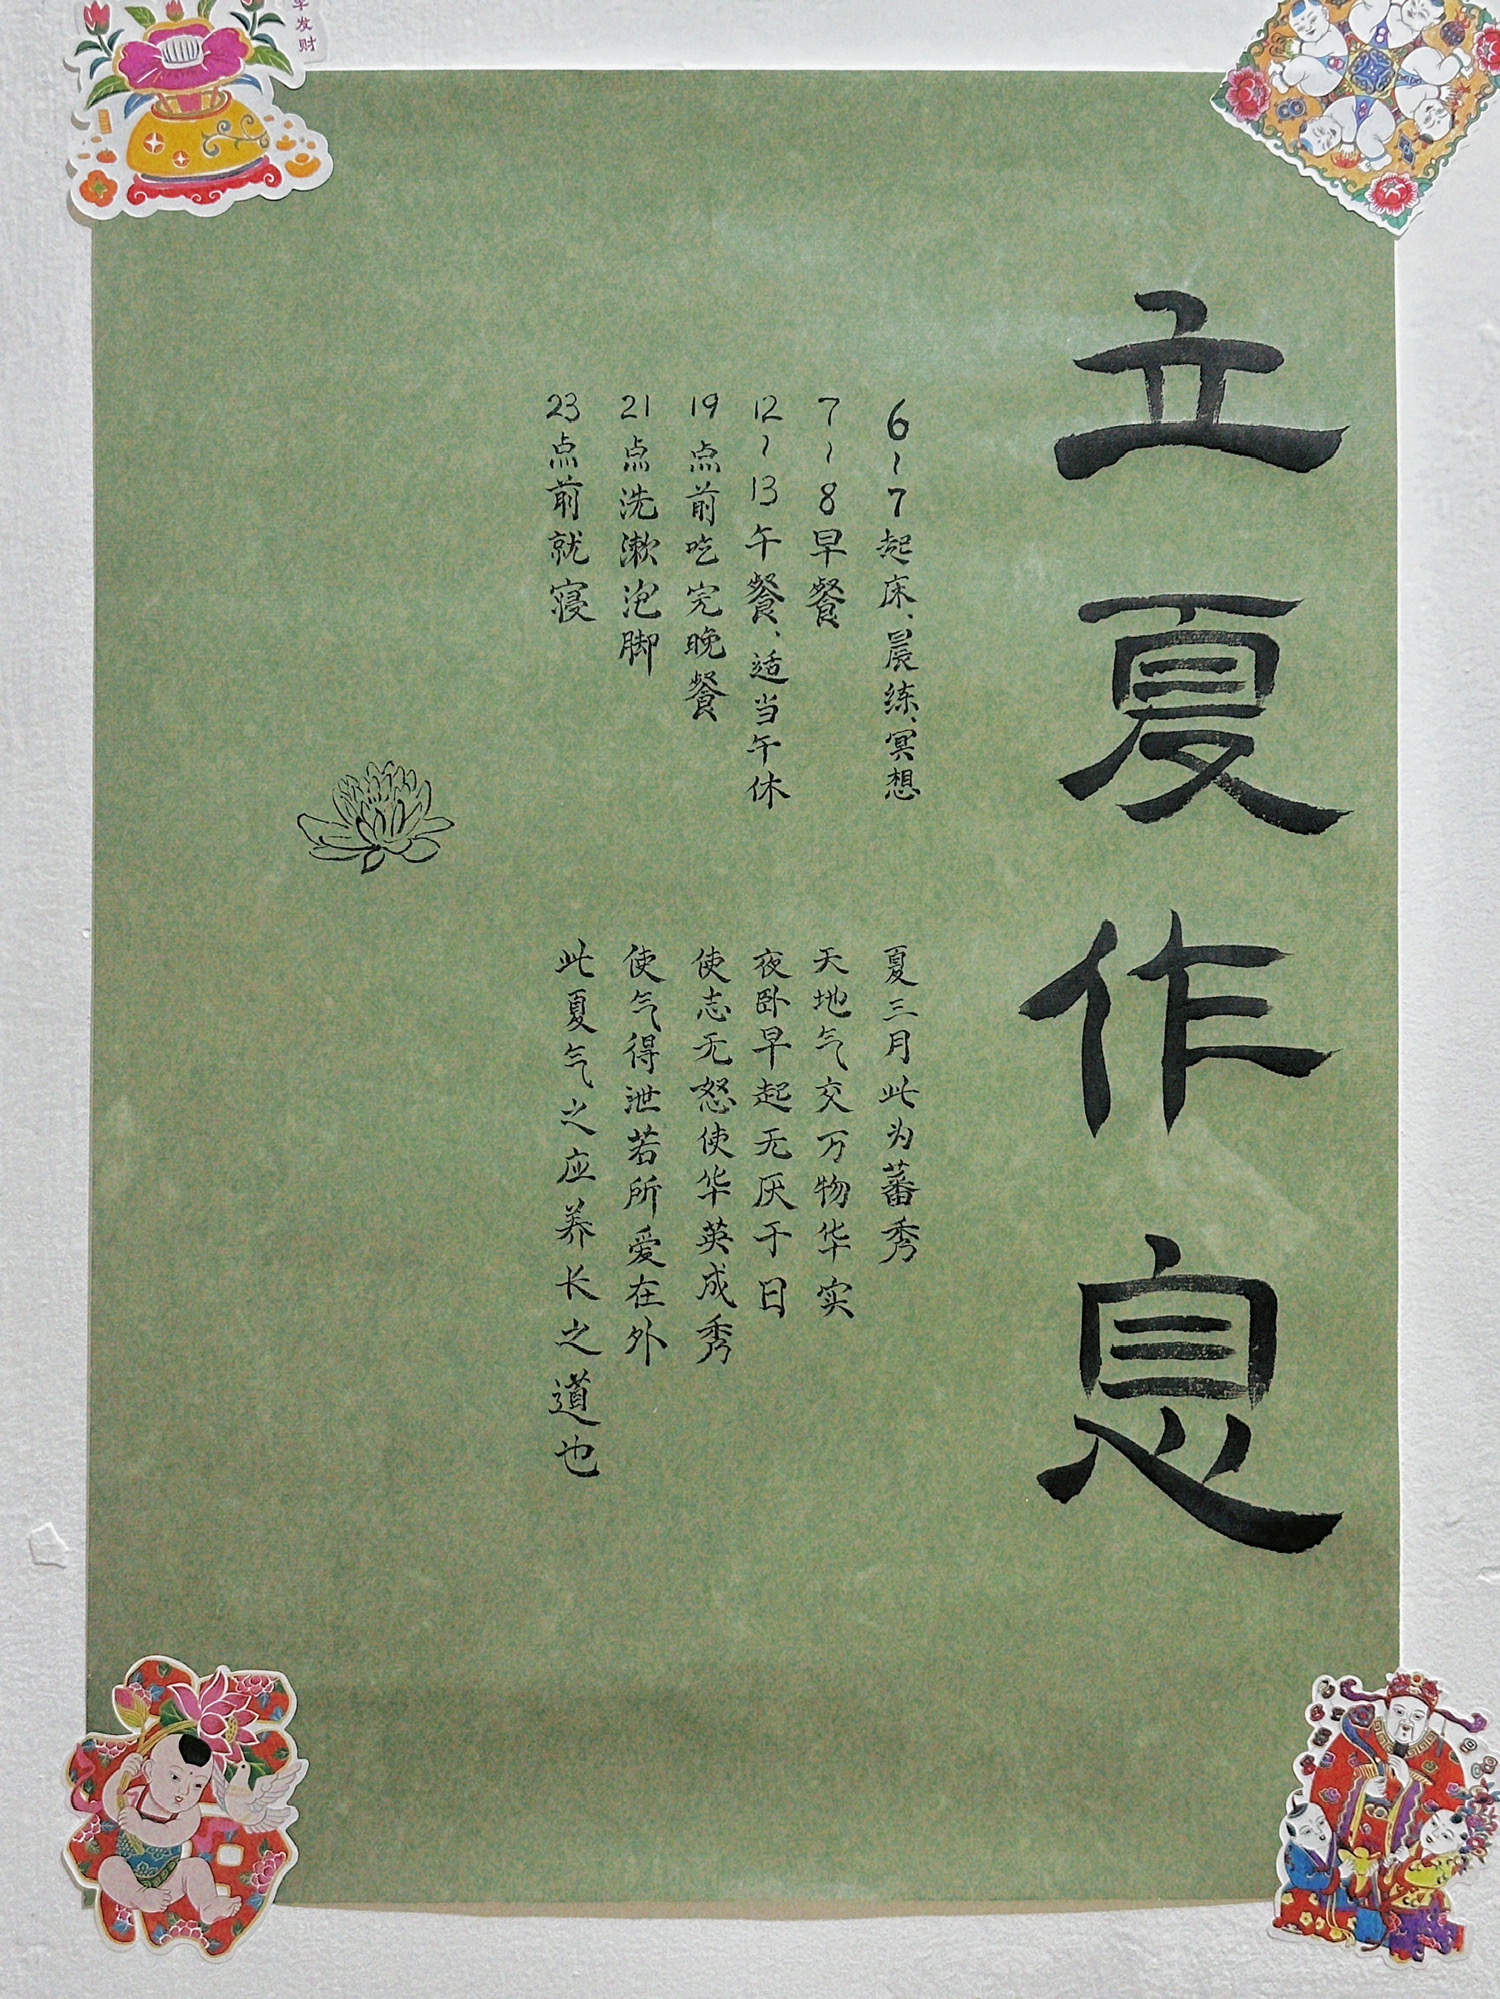 立夏作息
6~7起床、晨练、冥想
7~8早餐
12~13午餐、适当午休
19点前吃完晚餐
21点洗漱泡脚
23点前就寝
夏三月此为蕃秀
天地气交万物华实
夜卧早起无厌于日
使志无怒使华英成秀
使气得泄若所爱在外
此夏气之应养长之道也
发财